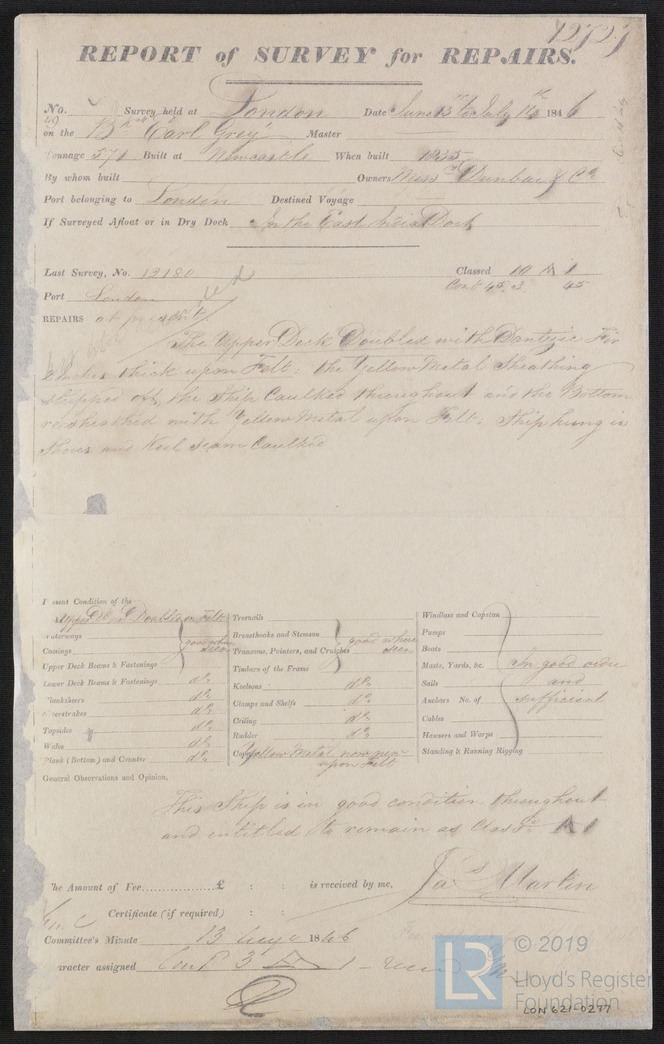 12727
REPORT of SURVEY for REPAIRS.
No. Survey held at London Date June 13th to July 14th 1846
49
on the Bk Earl Grey Master
Tonnage 571 Built at Newcastle When built 1835
By whom built Owners Messrs Dunbar & Co
Port belonging to London Destined Voyage
If Surveyed Afloat or in Dry Dock In the East India Dock
Last Survey, No. 12180 Classed 10 A 1
Port London Cont 45. 3 45
REPAIRS at present
The Upper Deck Doubled with Dantzic Fir
2 Inches thick upon Felt: the Yellow Metal Sheathing
stripped off, the Ship Caulked throughout and the Bottom
resheathed with Yellow Metal upon Felt. Ship hung in
Shores and Keel seam Caulked
Present Condition of the
Upper Dk Doubled on Felt
Waterways
Comings good where seen
Upper Deck Beams & Fastenings
Lower Deck Beams & Fastenings do
Planksheers do
Sheerstrakes do
Topsides do
Wales do
Plank (Bottom) and Counter do
Treenails
Breasthooks and Stemson
Transoms, Pointers, and Crutches good where seen
Timbers of the Frame
Keelsons do
Clamps and Shelfs do
Ceiling do
Rudder do
Copper Yellow Metal now new
upon Felt
Windlass and Capstan
Pumps
Boats
Masts, Yards, &c. In good order
Sails and
Anchors No. of sufficient
Cables
Hawsers and Warps
Standing & Running Rigging
General Observations and Opinion.
This Ship is in good condition throughout
and entitled to remain as Class'd A 1
The Amount of Fee £ : : is received by me,
Jas Martin
Certificate (if required) : :
Committee's Minute 13 Augt 1846
Character assigned Cont 3
© 2019
LR
Lloyd's Register
Foundation
LON 621-0277